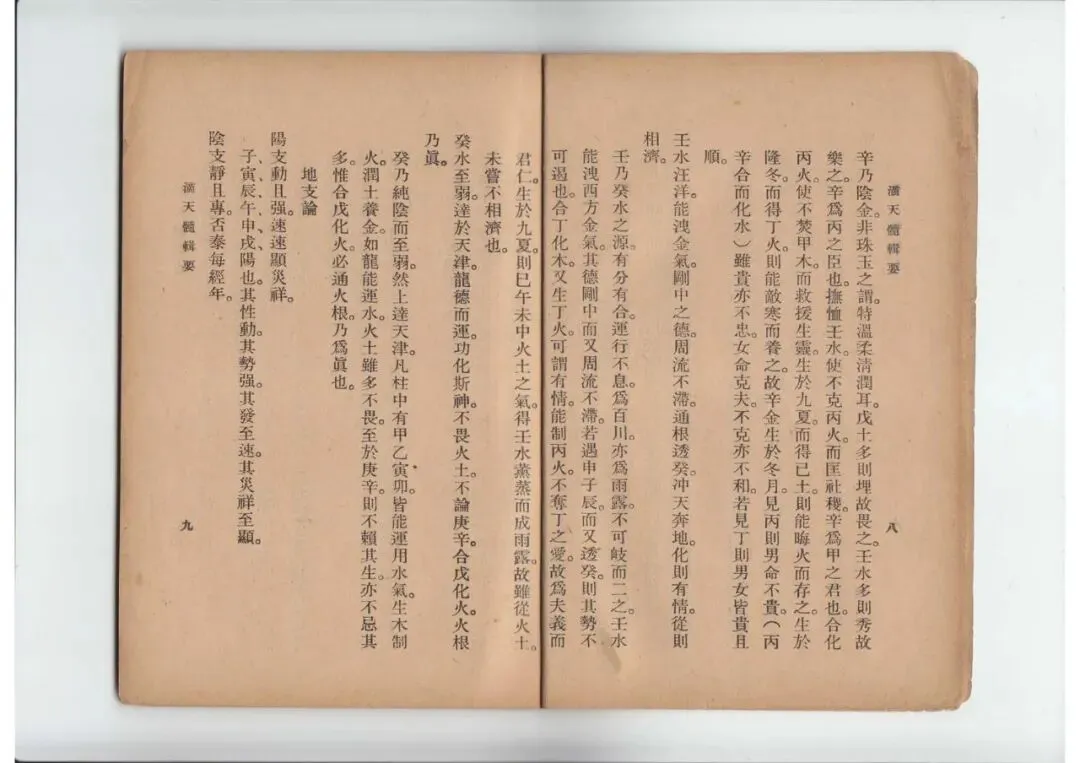 滴天髓輯要
八
辛乃陰金。非珠玉之謂。特溫柔清潤耳。戊土多則埋。故畏之。壬水多則秀。故
樂之。辛爲丙之臣也。撫恤壬水。使不克丙火。而匡社稷。辛爲甲之君也。合化
丙火。使不焚甲木。而救援生靈。生於九夏。而得己土。則能晦火而存之。生於
隆冬。而得丁火。則能敵寒而養之。故辛金生於冬月。見丙則男命不貴。(丙
辛合而化水)雖貴亦不忠。女命克夫。不克亦不和。若見丁則男女皆貴且
順。
壬水汪洋。能洩金氣。剛中之德。周流不滯。通根透癸。沖天奔地。化則有情。從則
相濟。
壬乃癸水之源。有分有合。運行不息。爲百川。亦爲雨露。不可岐而二之。壬水
能洩西方金氣。其德剛中而又周流不滯。若遇申子辰。而又透癸。則其勢不
可遏也。合丁化木。又生丁火。可謂有情。能制丙火。不奪丁之愛。故爲夫義而
君仁。生於九夏。則巳午未中火土之氣。得壬水薰蒸而成雨露。故雖從火土。
未嘗不相濟也。
癸水至弱。達於天津。龍德而運。功化斯神。不畏火土。不論庚辛。合戊化火。火根
乃眞。
癸乃純陰而至弱。然上達天津。凡柱中有甲乙寅卯。皆能運用水氣。生木制
火。潤土養金。如龍能運水。火土雖多不畏。至於庚辛。則不賴其生。亦不忌其
多。惟合戊化火。必通火根。乃爲眞也。
地支論
陽支動且强。速速顯災祥。
子、寅、辰、午、申、戌、陽也。其性動。其勢强。其發至速。其災祥至顯。
陰支靜且專。否泰每經年。
滴天髓輯要
九